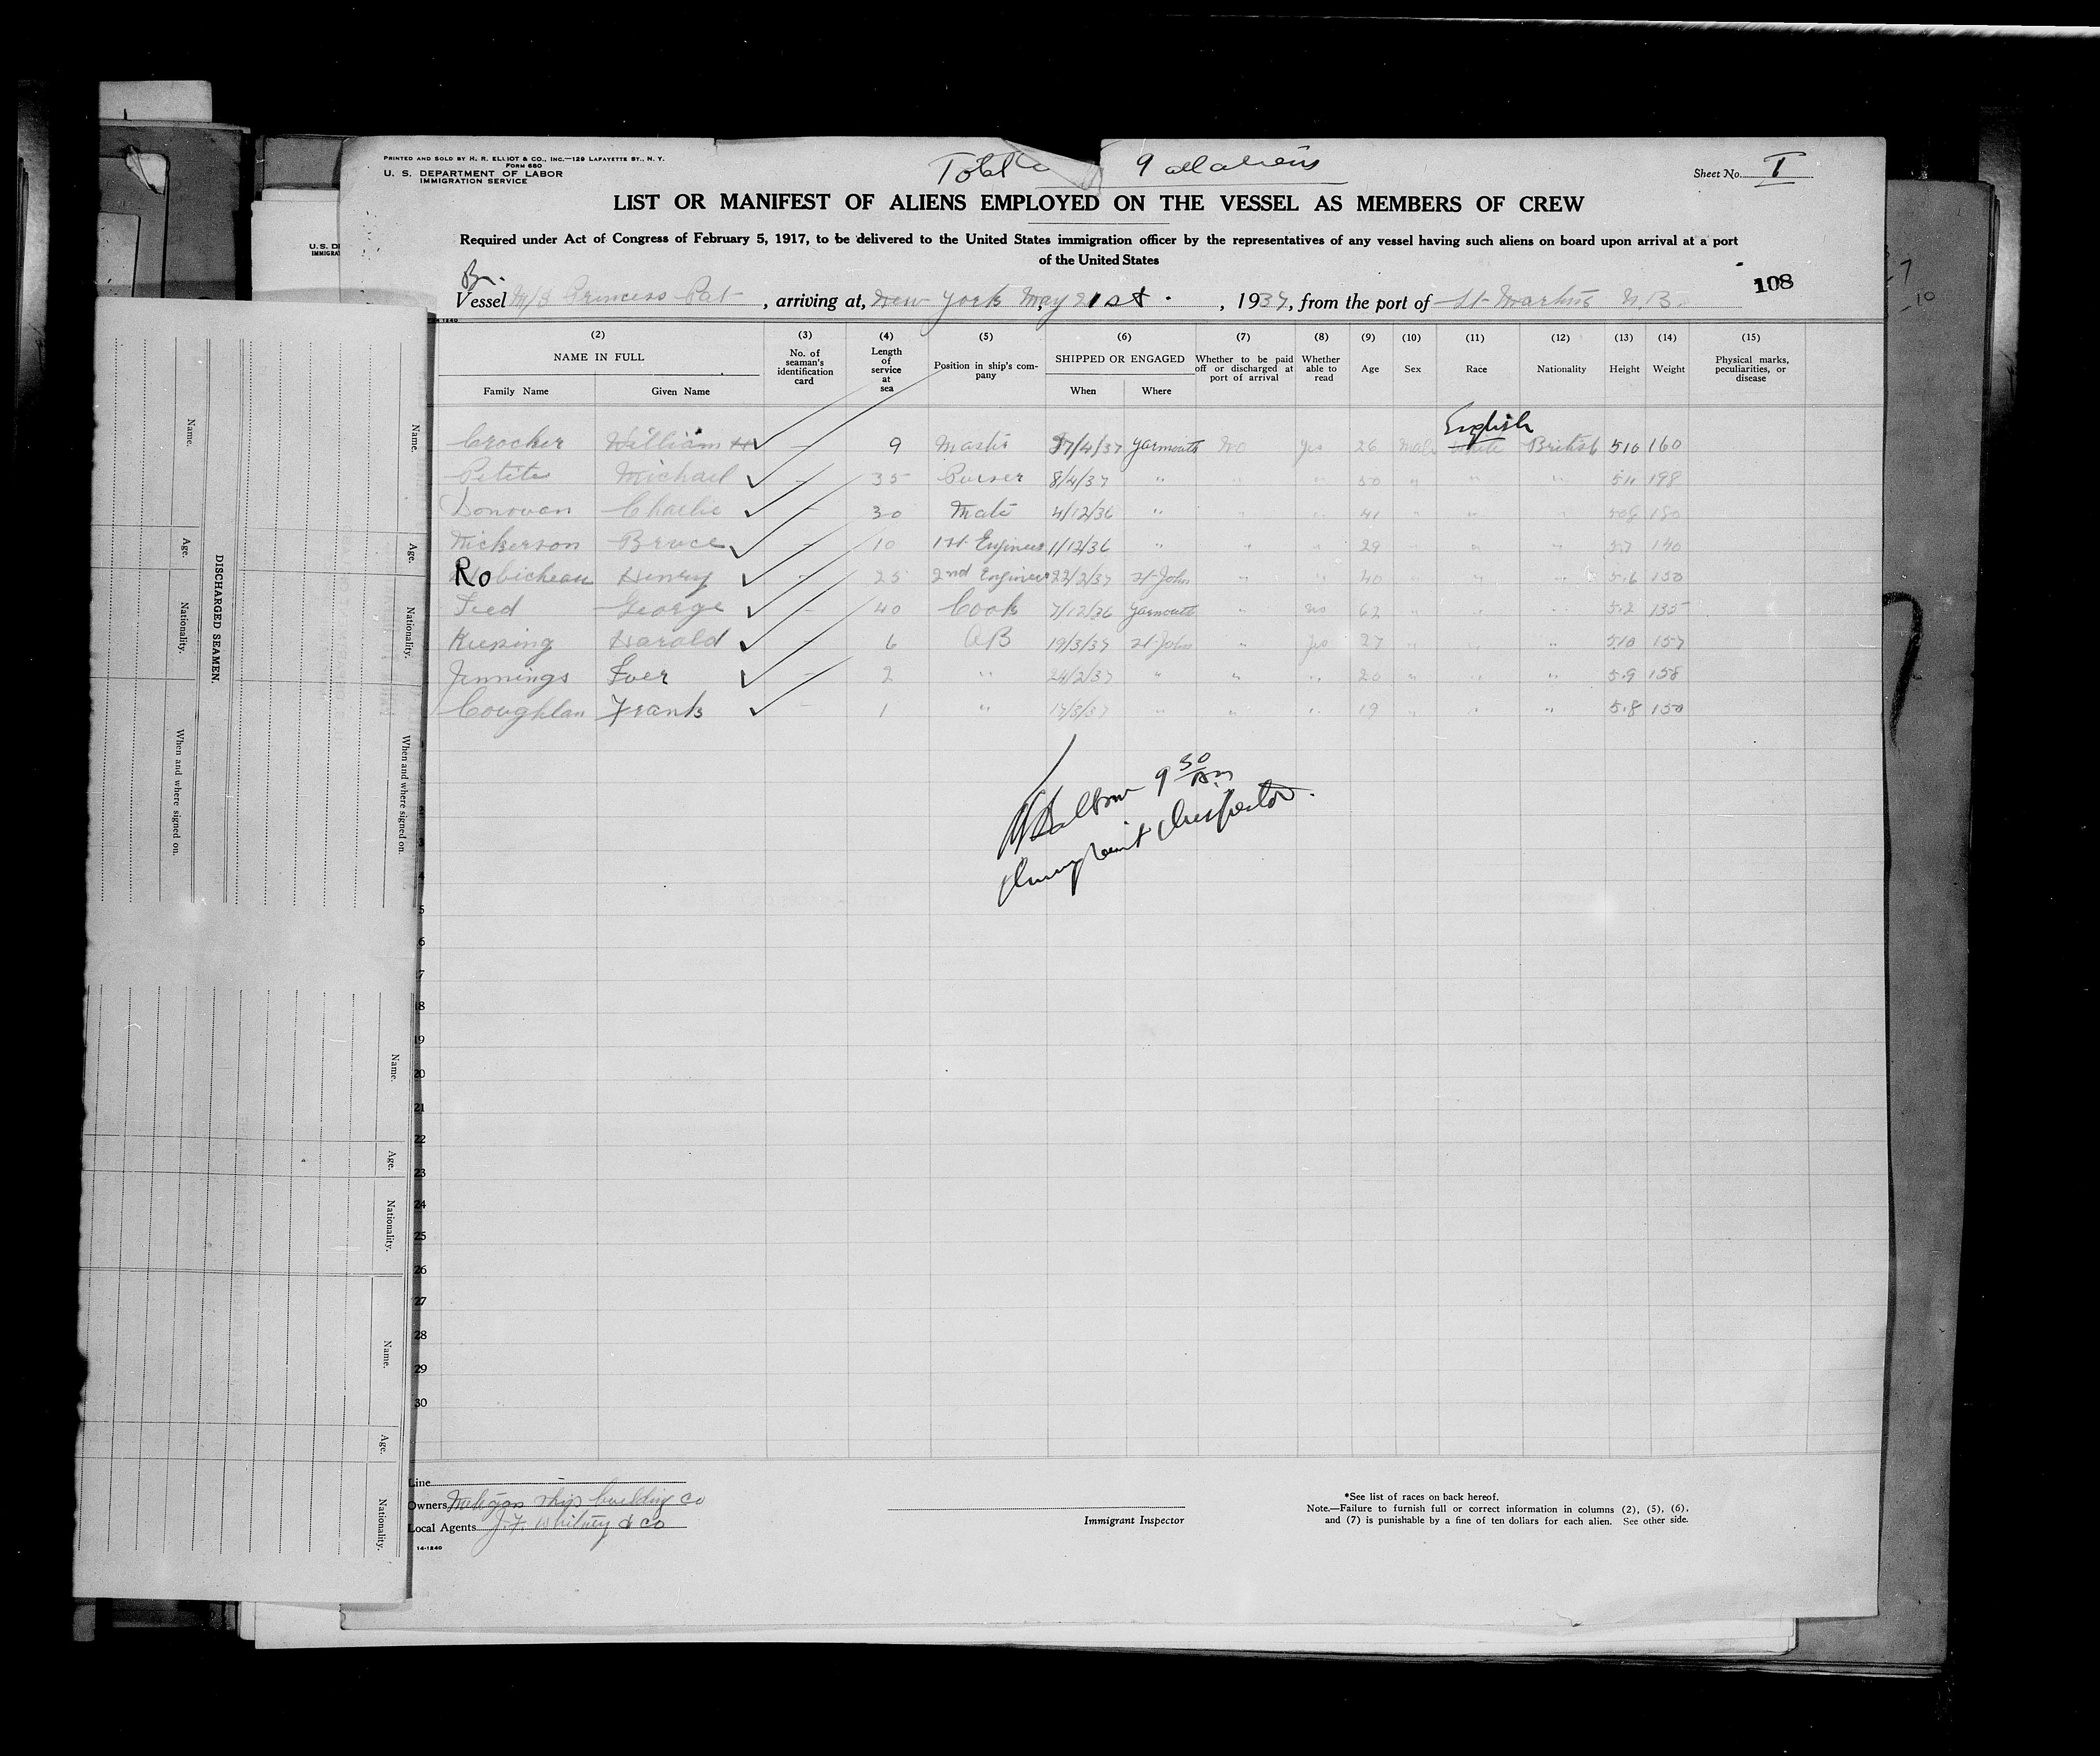 PRINTED AND SOLD BY H. R. ELLIOT & CO., INC.—129 LAFAYETTE ST., N. Y.
FORM 680
U. S. DEPARTMENT OF LABOR
IMMIGRATION SERVICE
Total 9 all aliens
Sheet No. I
LIST OR MANIFEST OF ALIENS EMPLOYED ON THE VESSEL AS MEMBERS OF CREW
Required under Act of Congress of February 5, 1917, to be delivered to the United States immigration officer by the representatives of any vessel having such aliens on board upon arrival at a port
of the United States
Br.
108
Vessel M/S Princess Pat, arriving at, New York May 21st, 1937, from the port of St Martins N.B.
(2) (3) (4) (5) (6) (7) (8) (9) (10) (11) (12) (13) (14) (15)
NAME IN FULL No. of seaman's identification card Length of service at sea Position in ship's company SHIPPED OR ENGAGED Whether to be paid off or discharged at port of arrival Whether able to read Age Sex Race Nationality Height Weight Physical marks, peculiarities, or disease
Family Name Given Name When Where
English
Crocker William H — 9 Master 27/4/37 Yarmouth No Yes 26 Male White British 510 160
Petite Michael — 35 Purser 8/4/37 " " " 50 " " " 511 198
Donovan Charlie — 30 Mate 4/12/36 " " " 41 " " " 508 180
Nickerson Bruce — 10 1st Engineer 1/12/36 " " " 29 " " " 5.7 140
Robicheau Henry — 25 2nd Engineer 22/2/37 St John " " 40 " " " 5.6 150
George — 40 Cook 7/12/36 Yarmouth " no 62 " " " 5.2 135
Keeping Harold — 6 AB 19/3/37 St John " Yes 27 " " " 5.10 157
Jennings Iver — 2 " 24/2/37 " " " 20 " " " 5.9 158
Coughlan Frank — 1 " " " " 19 " " " 5.8 150
9 30 Am
Immigrant Inspector.
5
6
17
18
19
20
21
22
23
24
25
26
27
28
29
30
Line
Owners ship building co
Local Agents J. F. Whitney & Co
14-1240
Immigrant Inspector
*See list of races on back hereof.
Note.—Failure to furnish full or correct information in columns (2), (5), (6),
and (7) is punishable by a fine of ten dollars for each alien. See other side.
DISCHARGED SEAMEN.
Name. Age. Nationality. When and where signed on.
Name. Age. Nationality. When and where signed on.
Name. Age. Nationality.
Name. Age. Nationality.